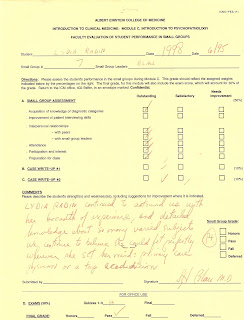 ALBERT EINSTEIN COLLEGE OF MEDICINE
INTRODUCTION TO CLINICAL MEDICINE - MODULE C, INTRODUCTION TO PSYCHOPATHOLOGY
FACULTY EVALUATION OF STUDENT PERFORMANCE IN SMALL GROUPS
Student LYDIA RADIN Class 1998 Date 6/95
Small Group # 7 Small Group Leaders
Directions: Please assess the student's performance in the small group during Module C. This grade should reflect the assigned weights
indicated below by the percentages on the right.
Outstanding Satisfactory Needs Improvement
A. SMALL GROUP ASSESSMENT
Acquisition of knowledge of diagnostic categories
Improvement of patient interviewing skills
Interpersonal relationships
- with peers
- with small group leaders
Attendance
Participation and interest
Preparation for class
B. CASE WRITE-UP #1
C. CASE WRITE-UP #2
COMMENTS
Please describe the student's strengths and weaknesses, including suggestions for improvement where it is indicated
LYDIA RADIN continued to astound us with
her breadth of experience, and detailed
knowledge about so many varied subjects
we continue to believe she could fit perfectly
wherever she set her mind: primary care
physician or a top
Small Group Grade:
Honors
Pass
Fail
Deferred
Submitted by Signature M.D.
FOR OFFICE USE
D. EXAMS
FINAL GRADE: Honors Pass Fail Deferred